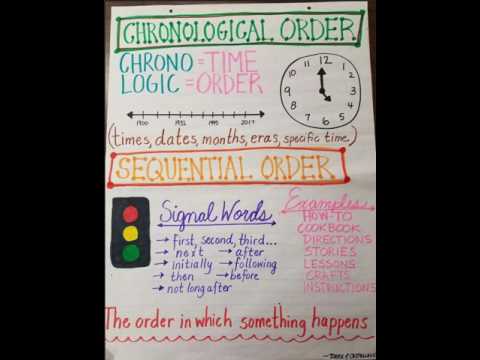 CHRONOLOGICAL ORDER
CHRONO = TIME
LOGIC = ORDER
12
11 1
10 2
9 3
8 4
7 5
6
1900 1995 2017
(times, dates, months, eras, specific time)
SEQUENTIAL ORDER
Signal Words
→ first, second, third...
→ next → after
→ initially → following
→ then → before
→ not long after
Examples
HOW-TO
COOKBOOK
DIRECTIONS
STORIES
LESSONS
CRAFTS
INSTRUCTIONS
The order in which something happens